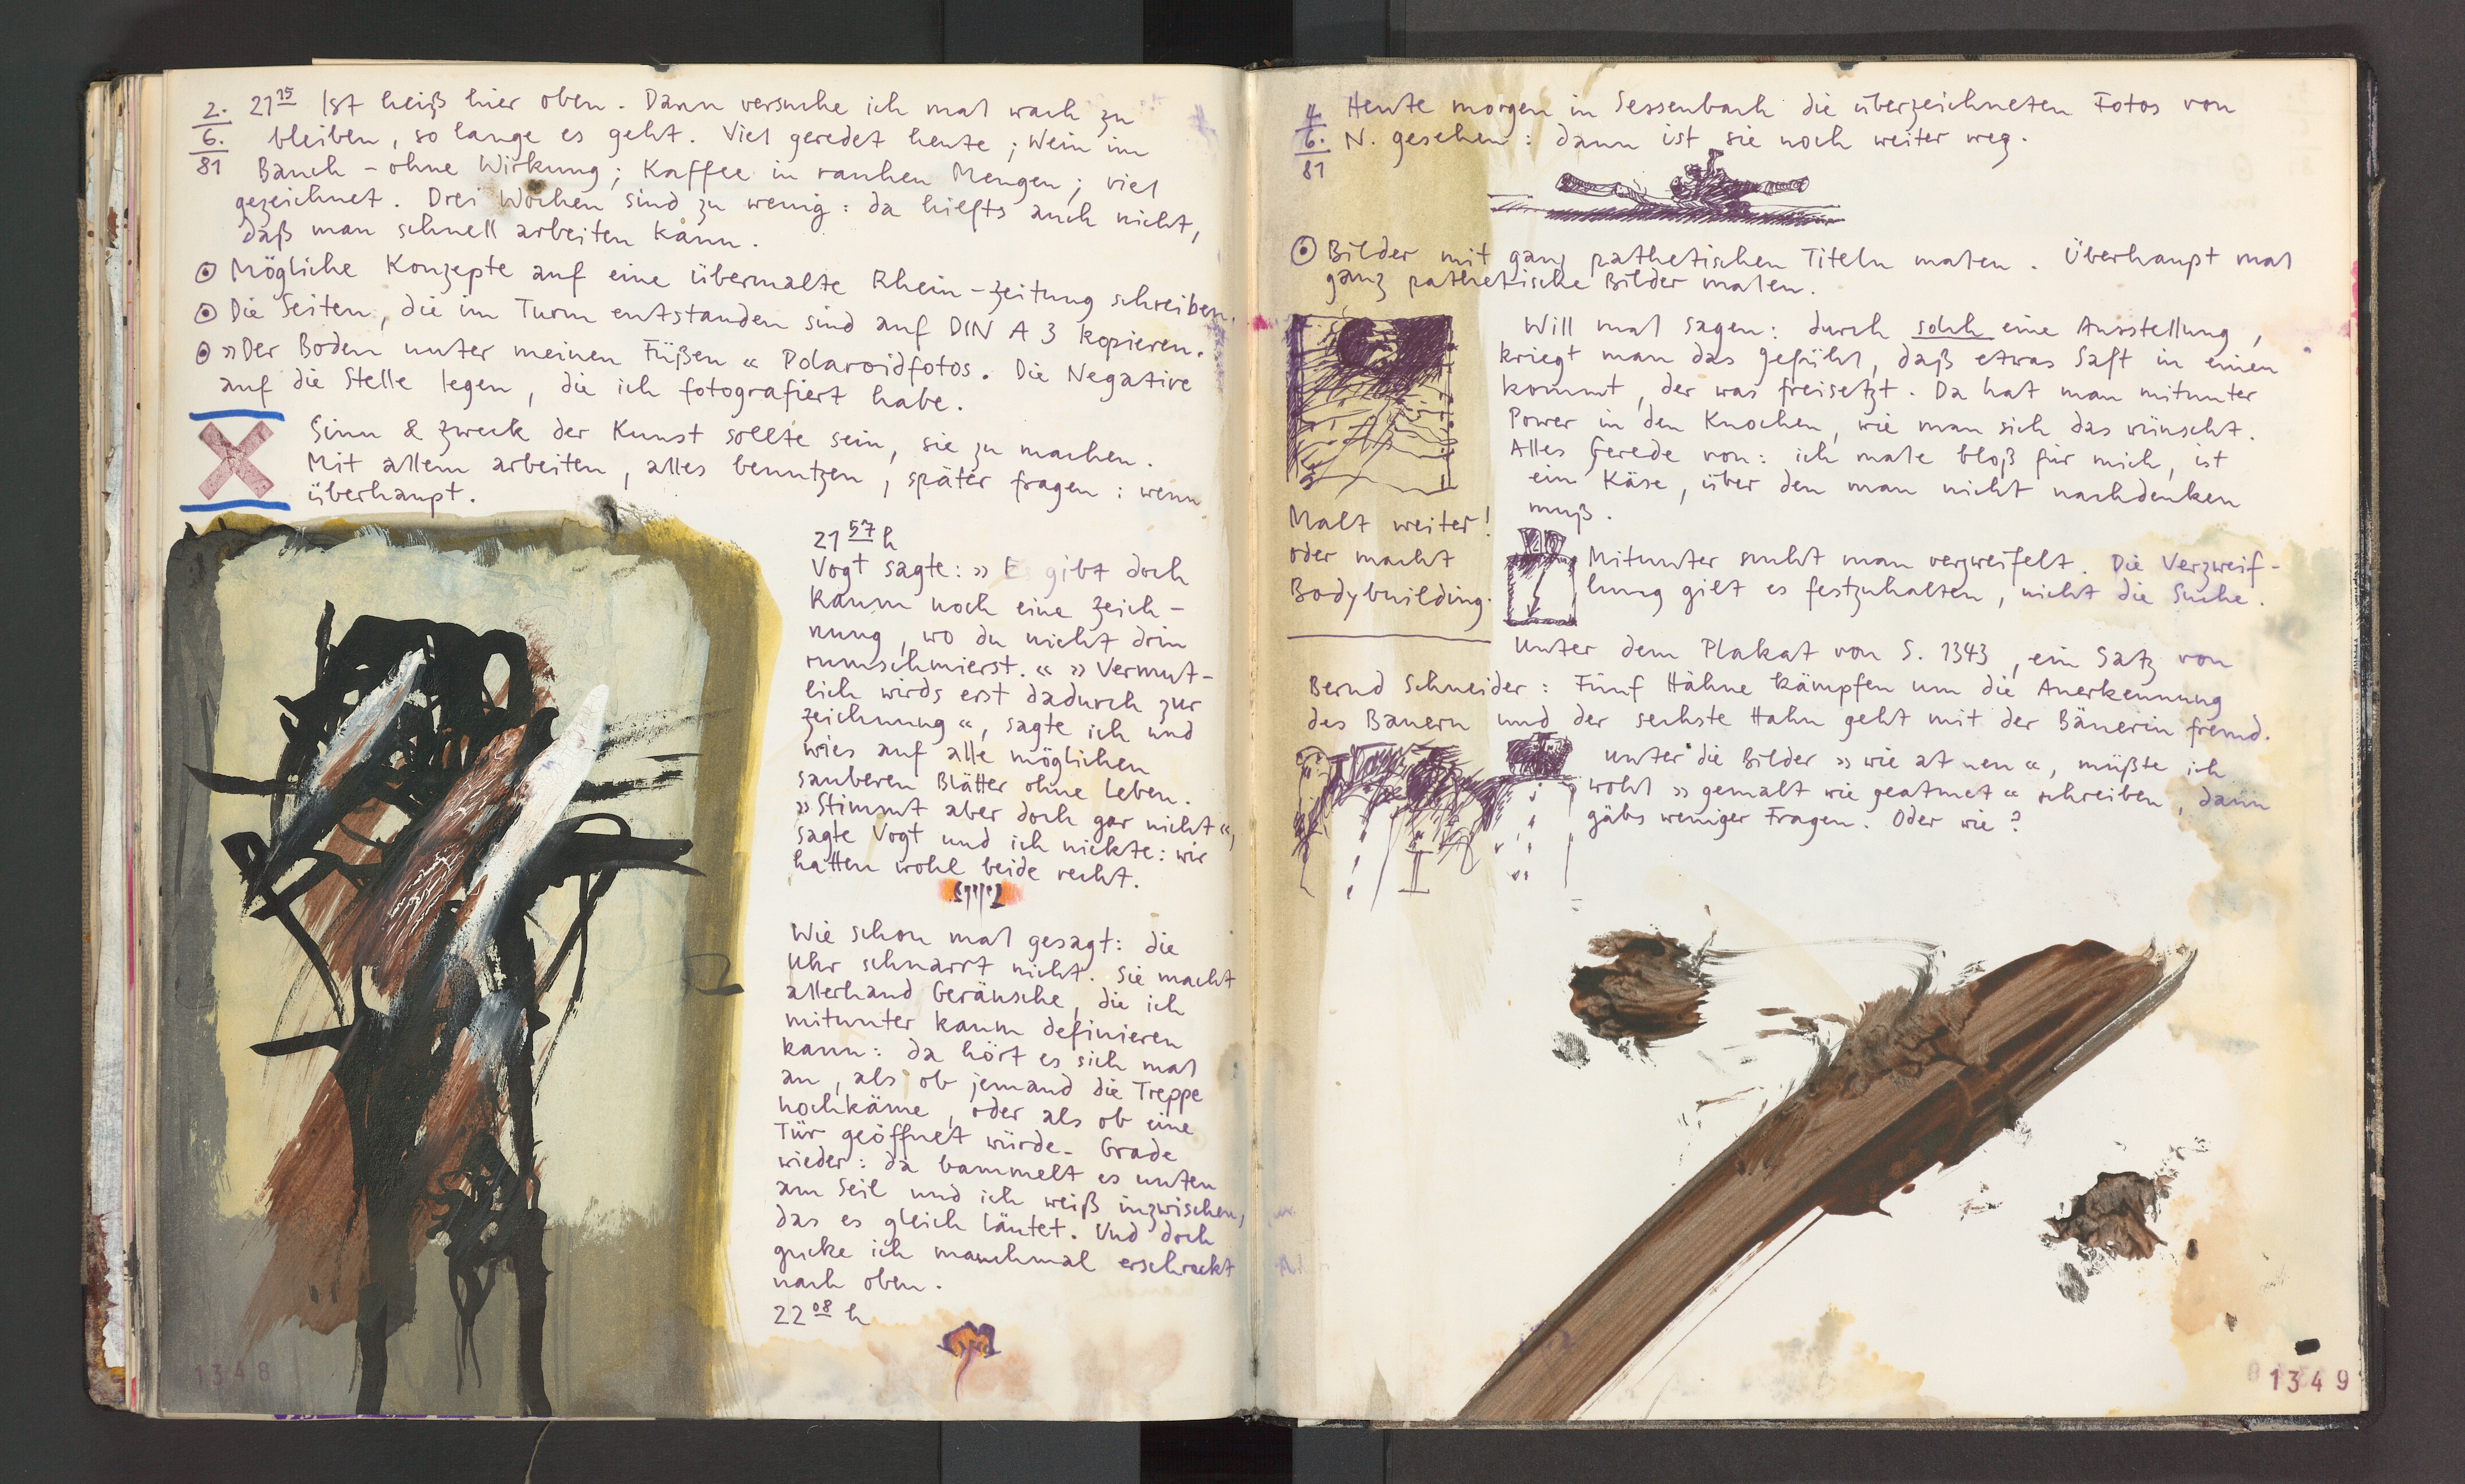 2. 6. 81
21 15 Ist heiß hier oben. Dann versuche ich mal wach zu
bleiben, so lange es geht. Viel geredet heute; Wein im
Bauch – ohne Wirkung; Kaffee in rauhen Mengen; viel
gezeichnet. Drei Wochen sind zu wenig: da hilfts auch nicht,
daß man schnell arbeiten kann.
Mögliche Konzepte auf eine übermalte Rhein-Zeitung schreiben.
Die Seiten, die im Turm entstanden sind auf DIN A 3 kopieren.
»Der Boden unter meinen Füßen« Polaroidfotos. Die Negative
auf die Stelle legen, die ich fotografiert habe.
Sinn & Zweck der Kunst sollte sein, sie zu machen.
Mit allem arbeiten, alles benutzen, später fragen: wenn
überhaupt.
21 57 h
Vogt sagte: » Es gibt doch
kaum noch eine Zeich-
nung, wo du nicht drin
rumschmierst.« » Vermut-
lich wirds erst dadurch zur
Zeichnung«, sagte ich und
wies auf alle möglichen
sauberen Blätter ohne Leben.
»Stimmt aber doch gar nicht«,
sagte Vogt und ich nickte: wir
hatten wohl beide recht.
Wie schon mal gesagt: die
Uhr schnarrt nicht. Sie macht
allerhand Geräusche, die ich
mitunter kaum definieren
kann: da hört es sich mal
an, als ob jemand die Treppe
hochkäme, oder als ob eine
Tür geöffnet würde. Grade
wieder: da bammelt es unten
am Seil und ich weiß inzwischen,
das es gleich läutet. Und doch
gucke ich manchmal erschreckt
nach oben.
22 08 h
1348
4. 6. 81
Heute morgen in Sessenbach die überzeichneten Fotos von
N. gesehen: dann ist sie noch weiter weg.
Bilder mit ganz pathetischen Titeln malen. Überhaupt mal
ganz pathetische Bilder malen.
Will mal sagen: durch solch eine Ausstellung,
kriegt man das Gefühl, daß etwas Saft in einen
kommt, der was freisetzt. Da hat man mitunter
Power in den Knochen, wie man sich das wünscht.
Alles Gerede von: ich male bloß für mich, ist
ein Käse, über den man nicht nachdenken
muß.
Malt weiter!
oder macht
Bodybuilding.
Mitunter sucht man verzweifelt. Die Verzweif-
lung gilt es festzuhalten, nicht die Suche.
Unter dem Plakat von S. 1343, ein Satz von
Bernd Schneider: Fünf Hähne kämpfen um die Anerkennung
des Bauern und der sechste Hahn geht mit der Bäuerin fremd.
Unter die Bilder » wie atmen«, müßte ich
wohl » gemalt wie geatmet« schreiben, dann
gäbs weniger Fragen. Oder wie?
1349